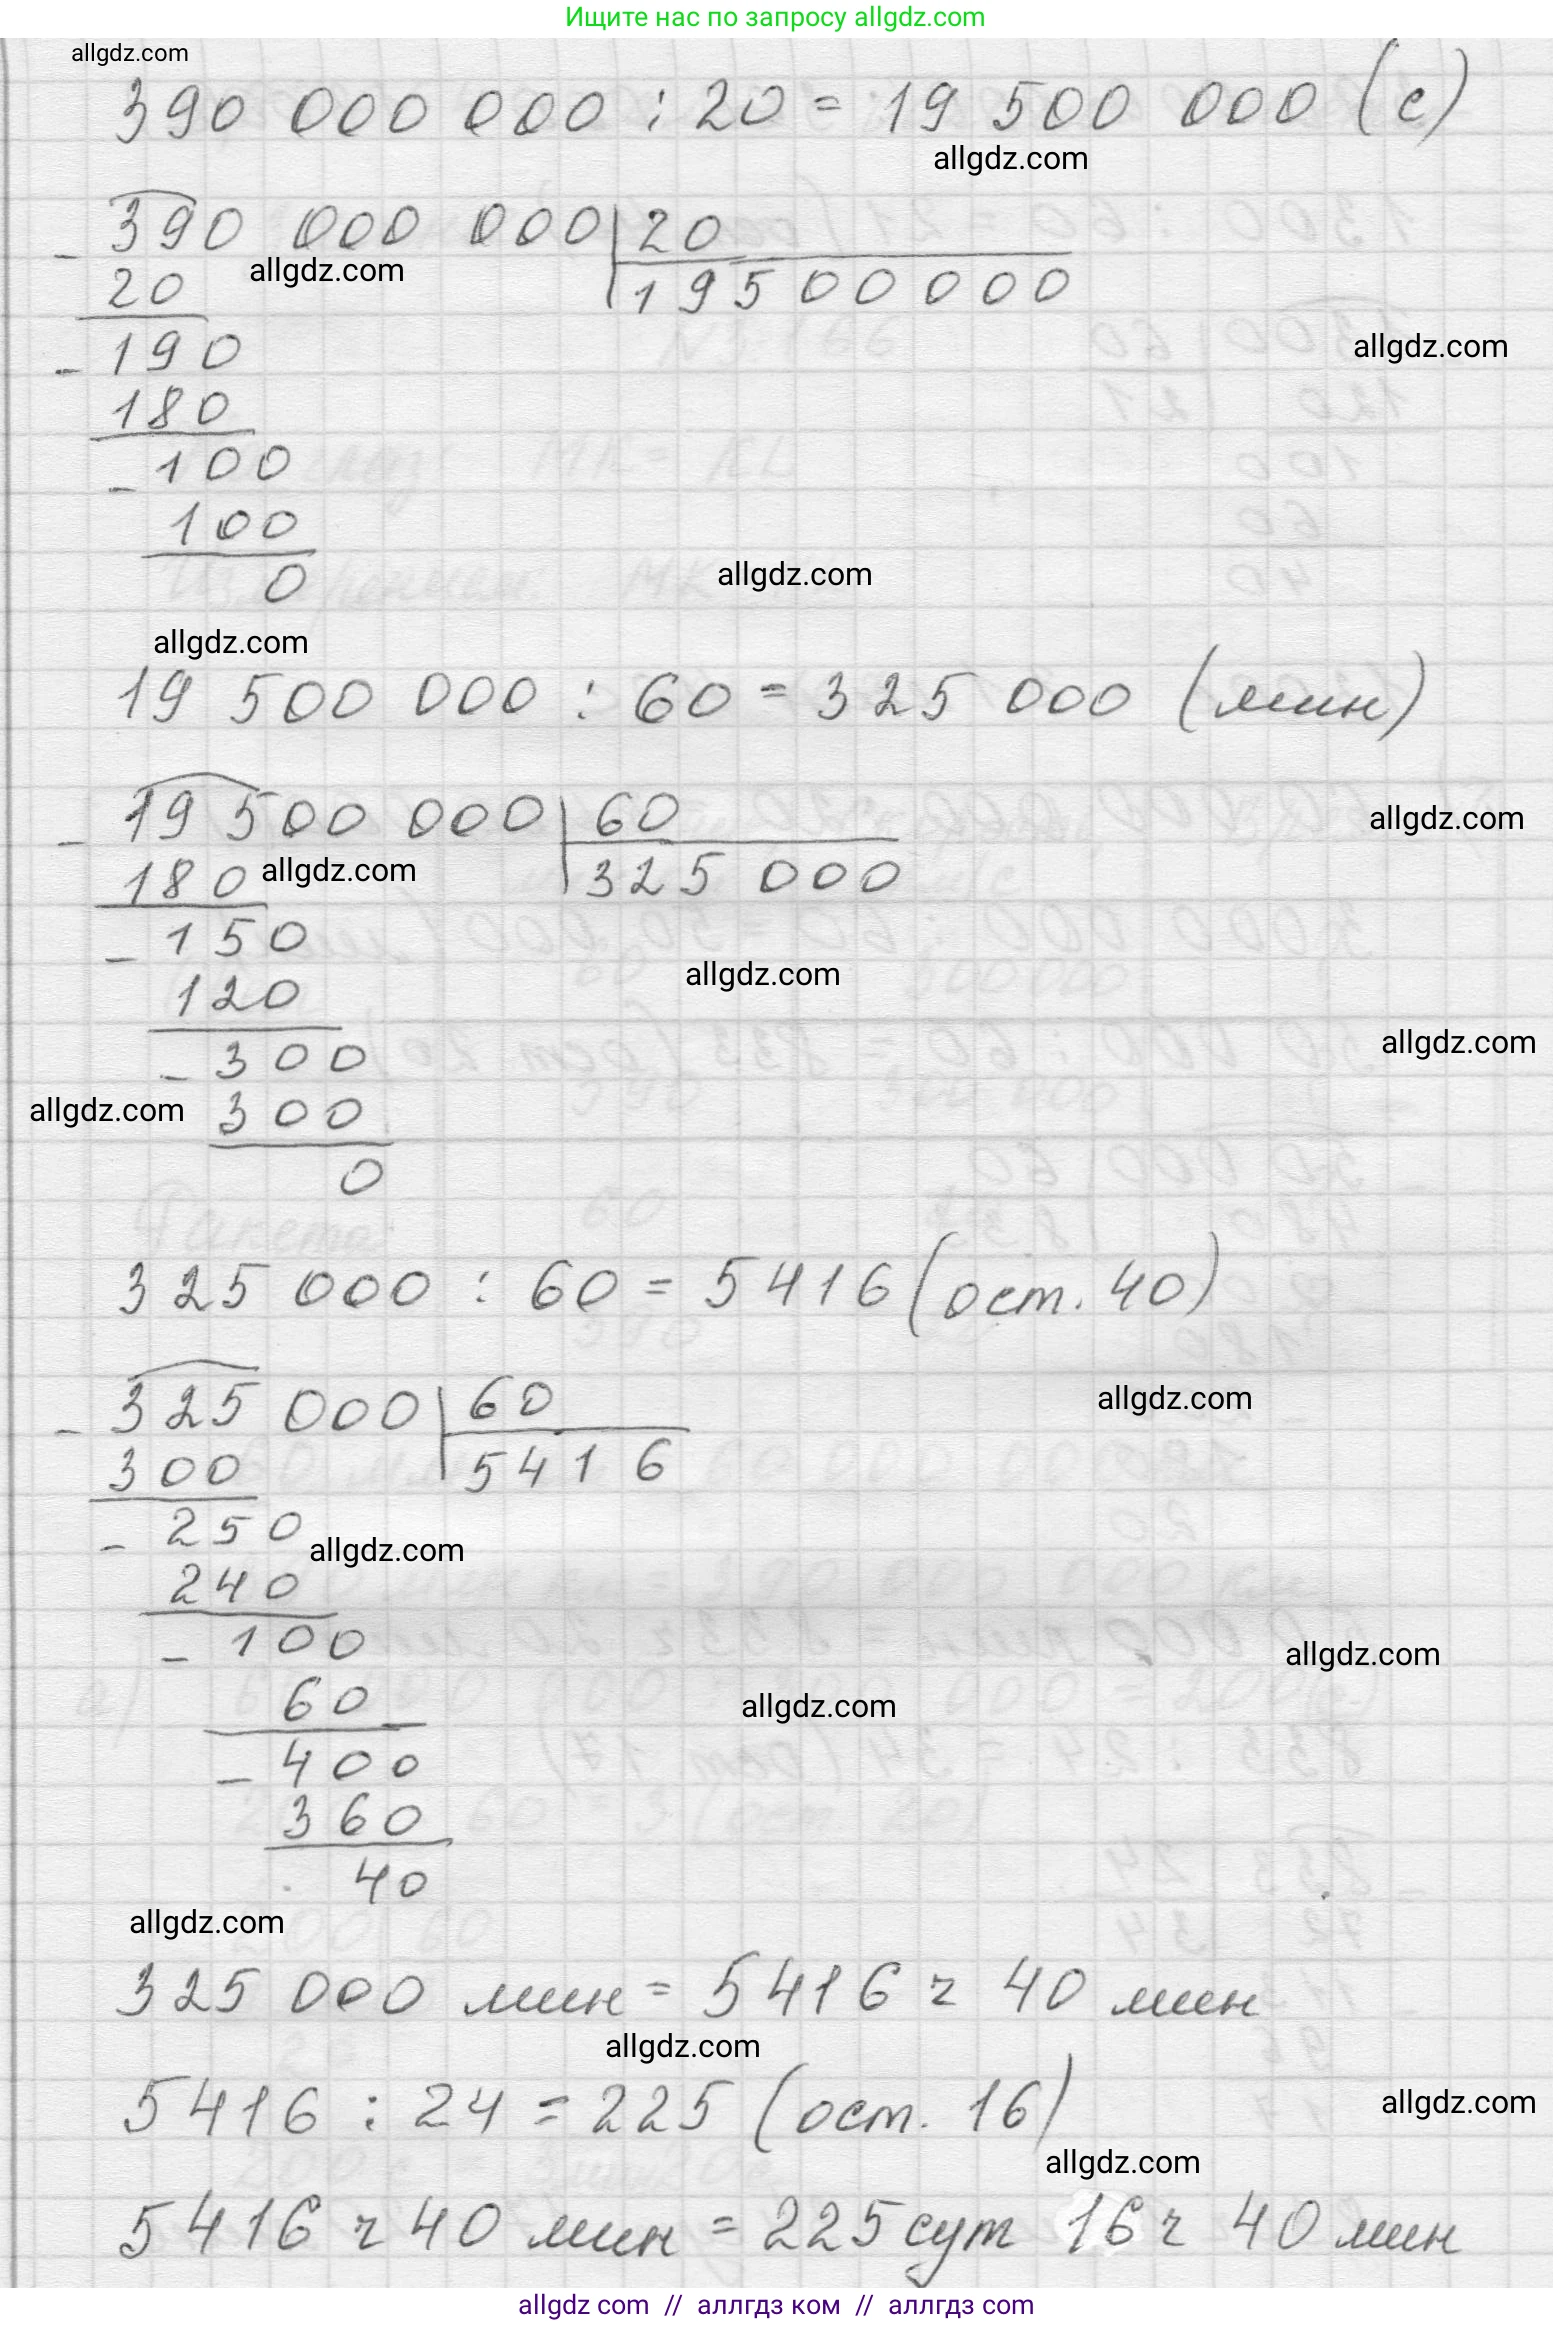 Ищите нас по запросу allgdz.com
allgdz.com
390 000 000 : 20 = 19 500 000 (с)
allgdz.com
390 000 000 | 20
- 20 allgdz.com 19500000
- 190 allgdz.com
180
- 100
100
0 allgdz.com
allgdz.com
19 500 000 : 60 = 325 000 (мин)
- 19 500 000 | 60 allgdz.com
180 allgdz.com 325 000
- 150
120 allgdz.com
- 300 allgdz.com
allgdz.com 300
0
325 000 : 60 = 5416 (ост. 40)
- 325 000 | 60 allgdz.com
300 5416
- 250 allgdz.com
240
- 100 allgdz.com
60 allgdz.com
- 400
360
40
allgdz.com
325 000 мин = 5416 ч 40 мин
allgdz.com
5416 : 24 = 225 (ост. 16) allgdz.com
allgdz.com
5416 ч 40 мин = 225 сут 16 ч 40 мин
allgdz com // аллгдз ком // аллгдз com